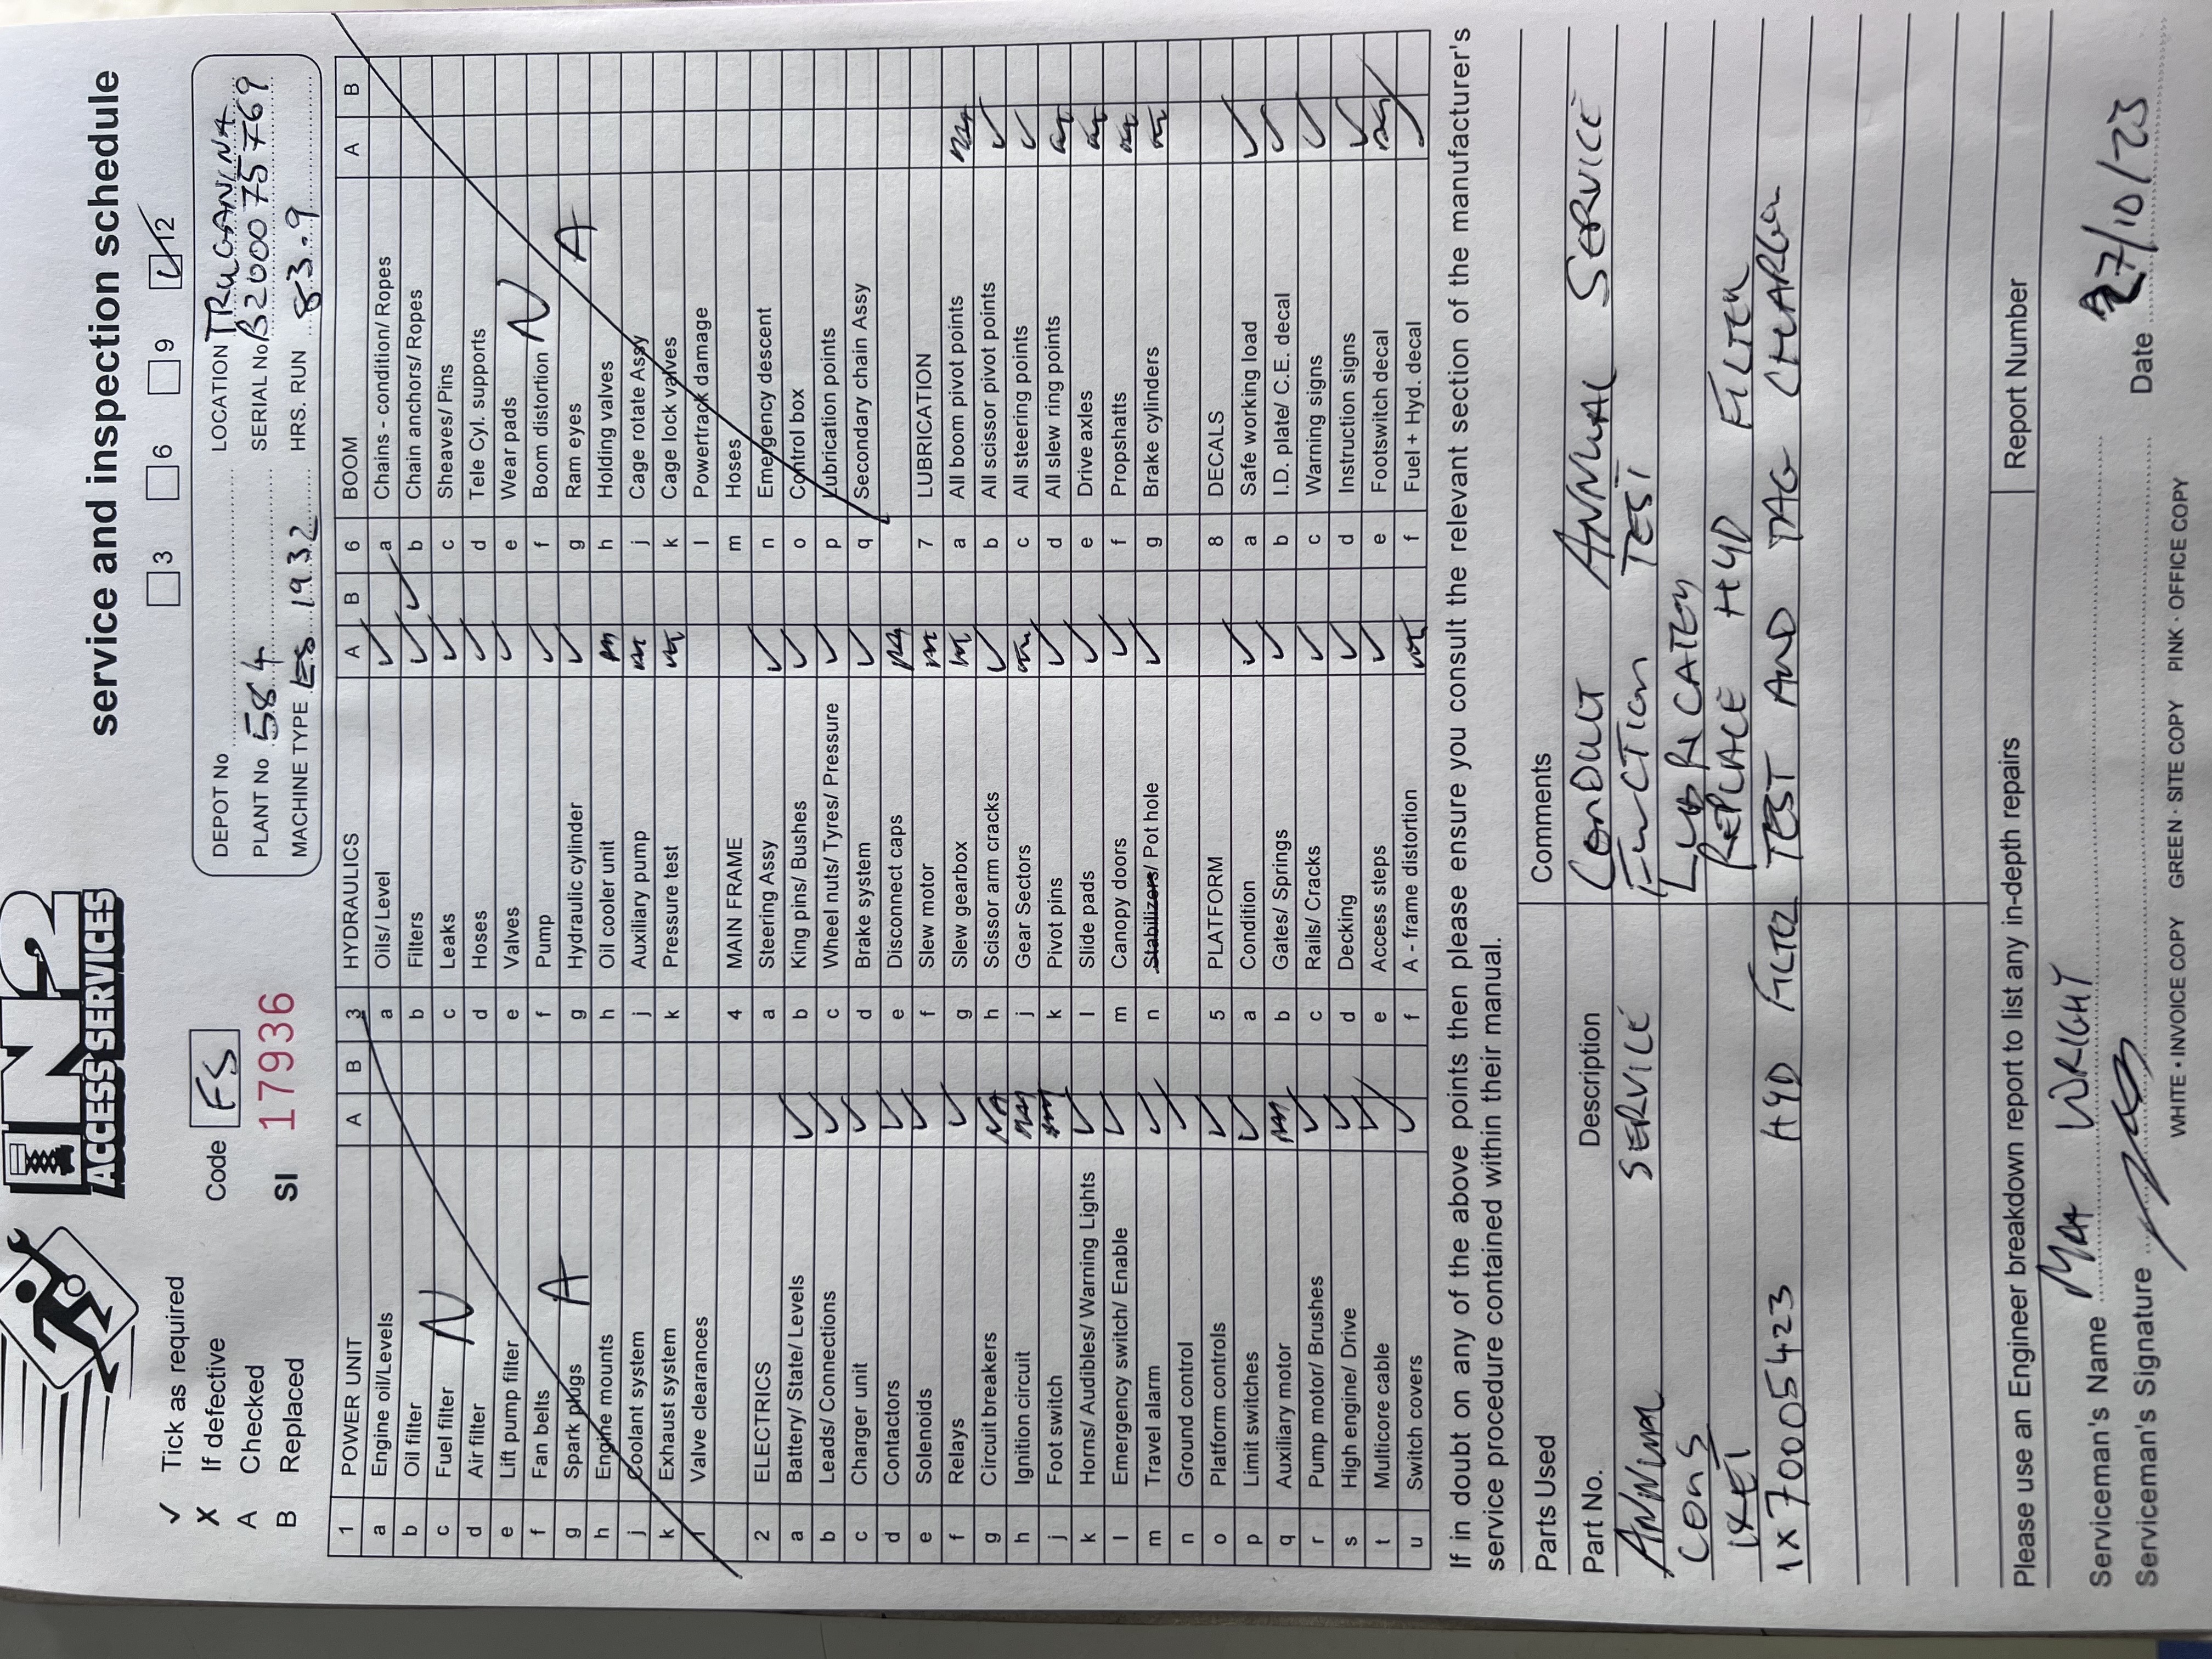 EN2
ACCESS SERVICES
service and inspection schedule
✓ Tick as required
X If defective
A Checked
B Replaced
Code FS
SI 17936
3 6 9 ✓ 12
DEPOT No
LOCATION TRUGANINA
PLANT No 584
SERIAL No B200075769
MACHINE TYPE ES 1932
HRS. RUN 83.9
1 POWER UNIT A B
a Engine oil/Levels
b Oil filter
c Fuel filter
d Air filter
e Lift pump filter
f Fan belts
g Spark plugs
h Engine mounts
j Coolant system
k Exhaust system
l Valve clearances
N A
2 ELECTRICS
a Battery/ State/ Levels ✓
b Leads/ Connections ✓
c Charger unit ✓
d Contactors ✓
e Solenoids ✓
f Relays ✓
g Circuit breakers NA
h Ignition circuit NA
j Foot switch NA
k Horns/ Audibles/ Warning Lights ✓
l Emergency switch/ Enable ✓
m Travel alarm ✓
n Ground control ✓
o Platform controls ✓
p Limit switches ✓
q Auxiliary motor NA
r Pump motor/ Brushes ✓
s High engine/ Drive ✓
t Multicore cable ✓
u Switch covers ✓
3 HYDRAULICS A B
a Oils/ Level ✓
b Filters ✓ ✓
c Leaks ✓
d Hoses ✓
e Valves ✓
f Pump ✓
g Hydraulic cylinder ✓
h Oil cooler unit NA
j Auxiliary pump NA
k Pressure test NA
4 MAIN FRAME
a Steering Assy ✓
b King pins/ Bushes ✓
c Wheel nuts/ Tyres/ Pressure ✓
d Brake system ✓
e Disconnect caps NA
f Slew motor NA
g Slew gearbox NA
h Scissor arm cracks ✓
j Gear Sectors NA
k Pivot pins ✓
l Slide pads ✓
m Canopy doors ✓
n Stabilizers/ Pot hole ✓
5 PLATFORM
a Condition ✓
b Gates/ Springs ✓
c Rails/ Cracks ✓
d Decking ✓
e Access steps ✓
f A - frame distortion NA
6 BOOM A B
a Chains - condition/ Ropes
b Chain anchors/ Ropes
c Sheaves/ Pins
d Tele Cyl. supports
e Wear pads
f Boom distortion
g Ram eyes
h Holding valves
j Cage rotate Assy
k Cage lock valves
l Powertrack damage
m Hoses
n Emergency descent
o Control box
p Lubrication points
q Secondary chain Assy
N A
7 LUBRICATION
a All boom pivot points NA
b All scissor pivot points ✓
c All steering points ✓
d All slew ring points NA
e Drive axles NA
f Propshatts NA
g Brake cylinders NA
8 DECALS
a Safe working load ✓
b I.D. plate/ C.E. decal ✓
c Warning signs ✓
d Instruction signs ✓
e Footswitch decal NA
f Fuel + Hyd. decal ✓
If in doubt on any of the above points then please ensure you consult the relevant section of the manufacturer's
service procedure contained within their manual.
Parts Used
Comments
Part No. Description
CONDUCT ANNUAL SERVICE
ANNUAL SERVICE
FUNCTION TEST
CONS
LUBRICATION
1XET
REPLACE HYD FILTER
1x 70005423 HYD FILTER
TEST AND TAG CHARGER
Please use an Engineer breakdown report to list any in-depth repairs
Report Number
Serviceman's Name WRIGHT
Serviceman's Signature
Date 27/10/23
WHITE • INVOICE COPY GREEN • SITE COPY PINK • OFFICE COPY